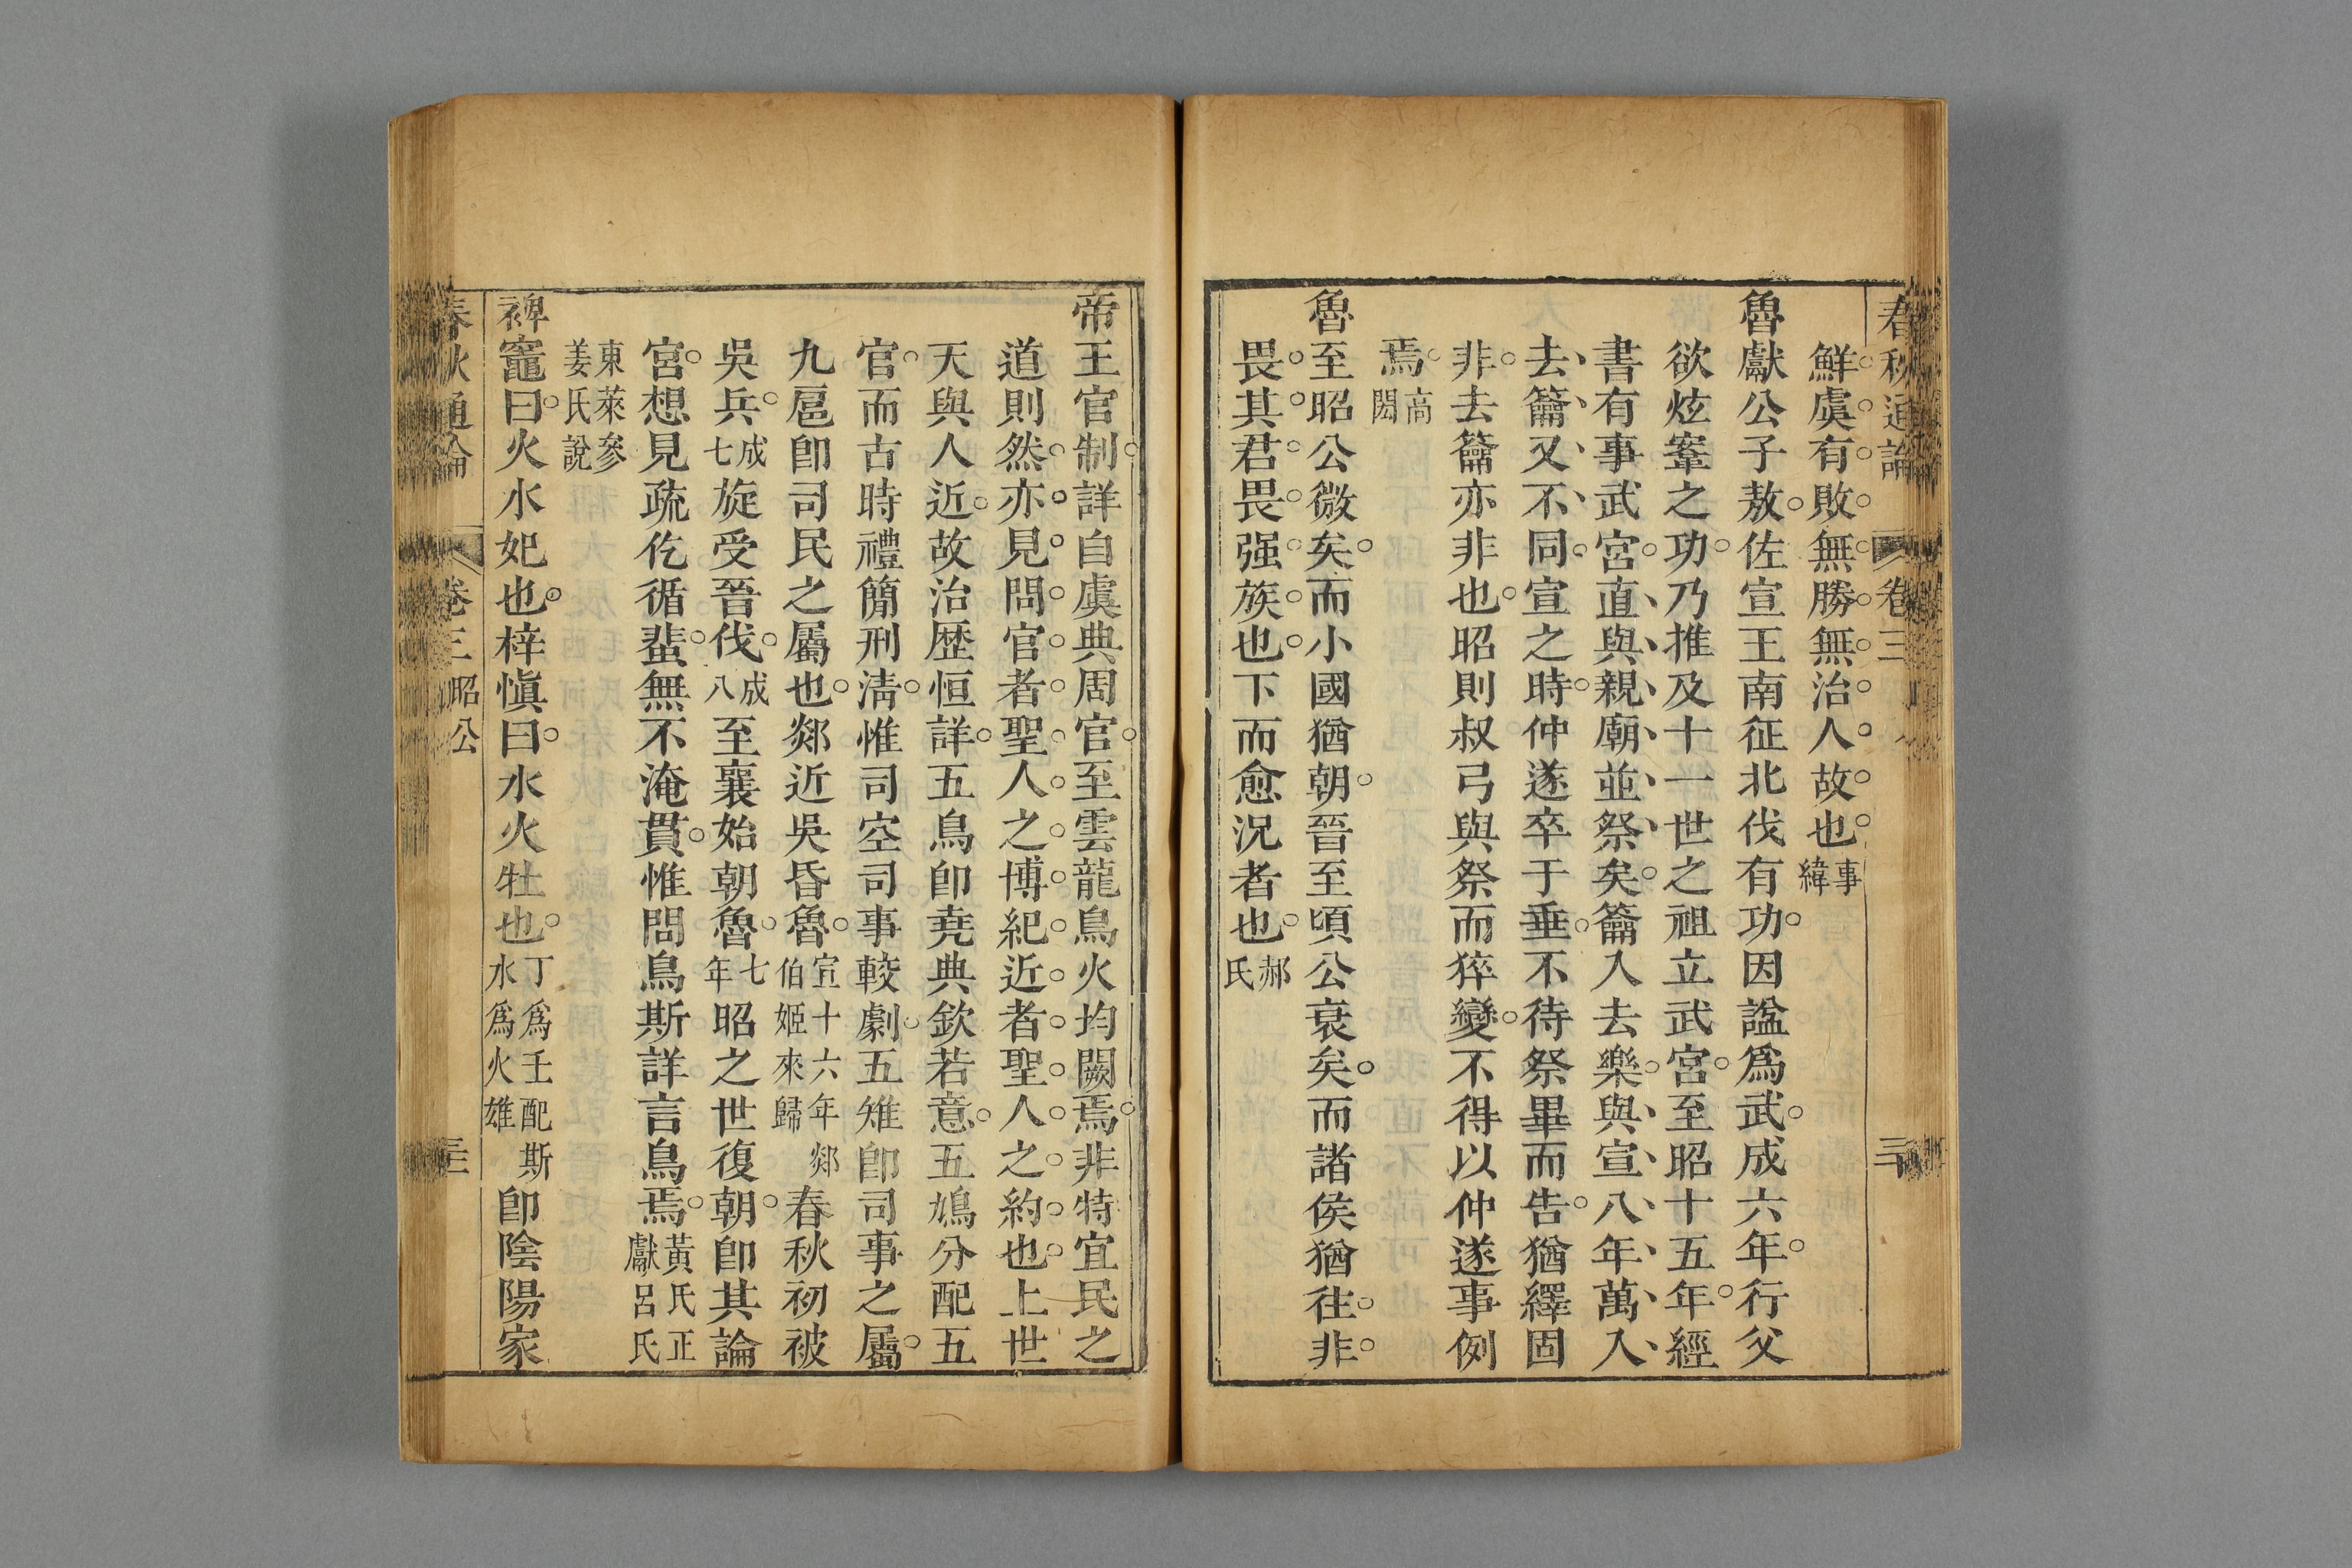 春秋通論 卷三 三十
鮮虞有敗無勝無治人故也事緯
魯獻公子敖佐宣王南征北伐有功因諡爲武成六年行父
欲炫鞌之功乃推及十一世之祖立武宮至昭十五年經
書有事武宮直與親廟並祭矣籥入去樂與宣八年萬入
去籥又不同宣之時仲遂卒于垂不待祭畢而告猶繹固
非去籥亦非也昭則叔弓與祭而猝變不得以仲遂事例
焉高閌
魯至昭公微矣而小國猶朝晉至頃公衰矣而諸侯猶往非
畏其君畏强族也下而愈况者也郝氏
帝王官制詳自虞典周官至雲龍鳥火均闕焉非特宜民之
道則然亦見問官者聖人之博紀近者聖人之約也上世
天與人近故治歷恒詳五鳥卽堯典欽若意五鳩分配五
官而古時禮簡刑淸惟司空司事較劇五雉卽司事之屬
九扈卽司民之屬也郯近吳昏魯宣十六年郯伯姬來歸春秋初被
吳兵成七旋受晉伐成八至襄始朝魯七年昭之世復朝卽其論
宮想見疏仡循蜚無不淹貫惟問鳥斯詳言鳥焉黃氏正獻呂氏
東萊參姜氏說
裨竈曰火水妃也梓愼曰水火牡也丁爲壬配斯水爲火雄卽陰陽家
春秋通論 卷三 昭公 三十